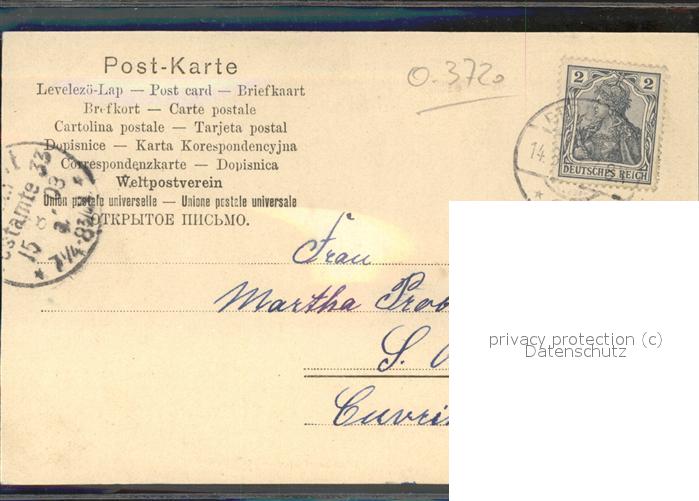 Post-Karte
Levelezö-Lap — Post card — Briefkaart
Brefkort — Carte postale
Cartolina postale — Tarjeta postal
Dopisnice — Karta Korespondencyjna
Correspondenzkarte — Dopisnica
Weltpostverein
Union postale universelle — Unione postale universale
ОТКРЫТОЕ ПИСЬМО.
0.3720
2 2
DEUTSCHES REICH
14.
stamte 33
15
7¼-8¾
Frau
Martha
S.
privacy protection (c)
Datenschutz